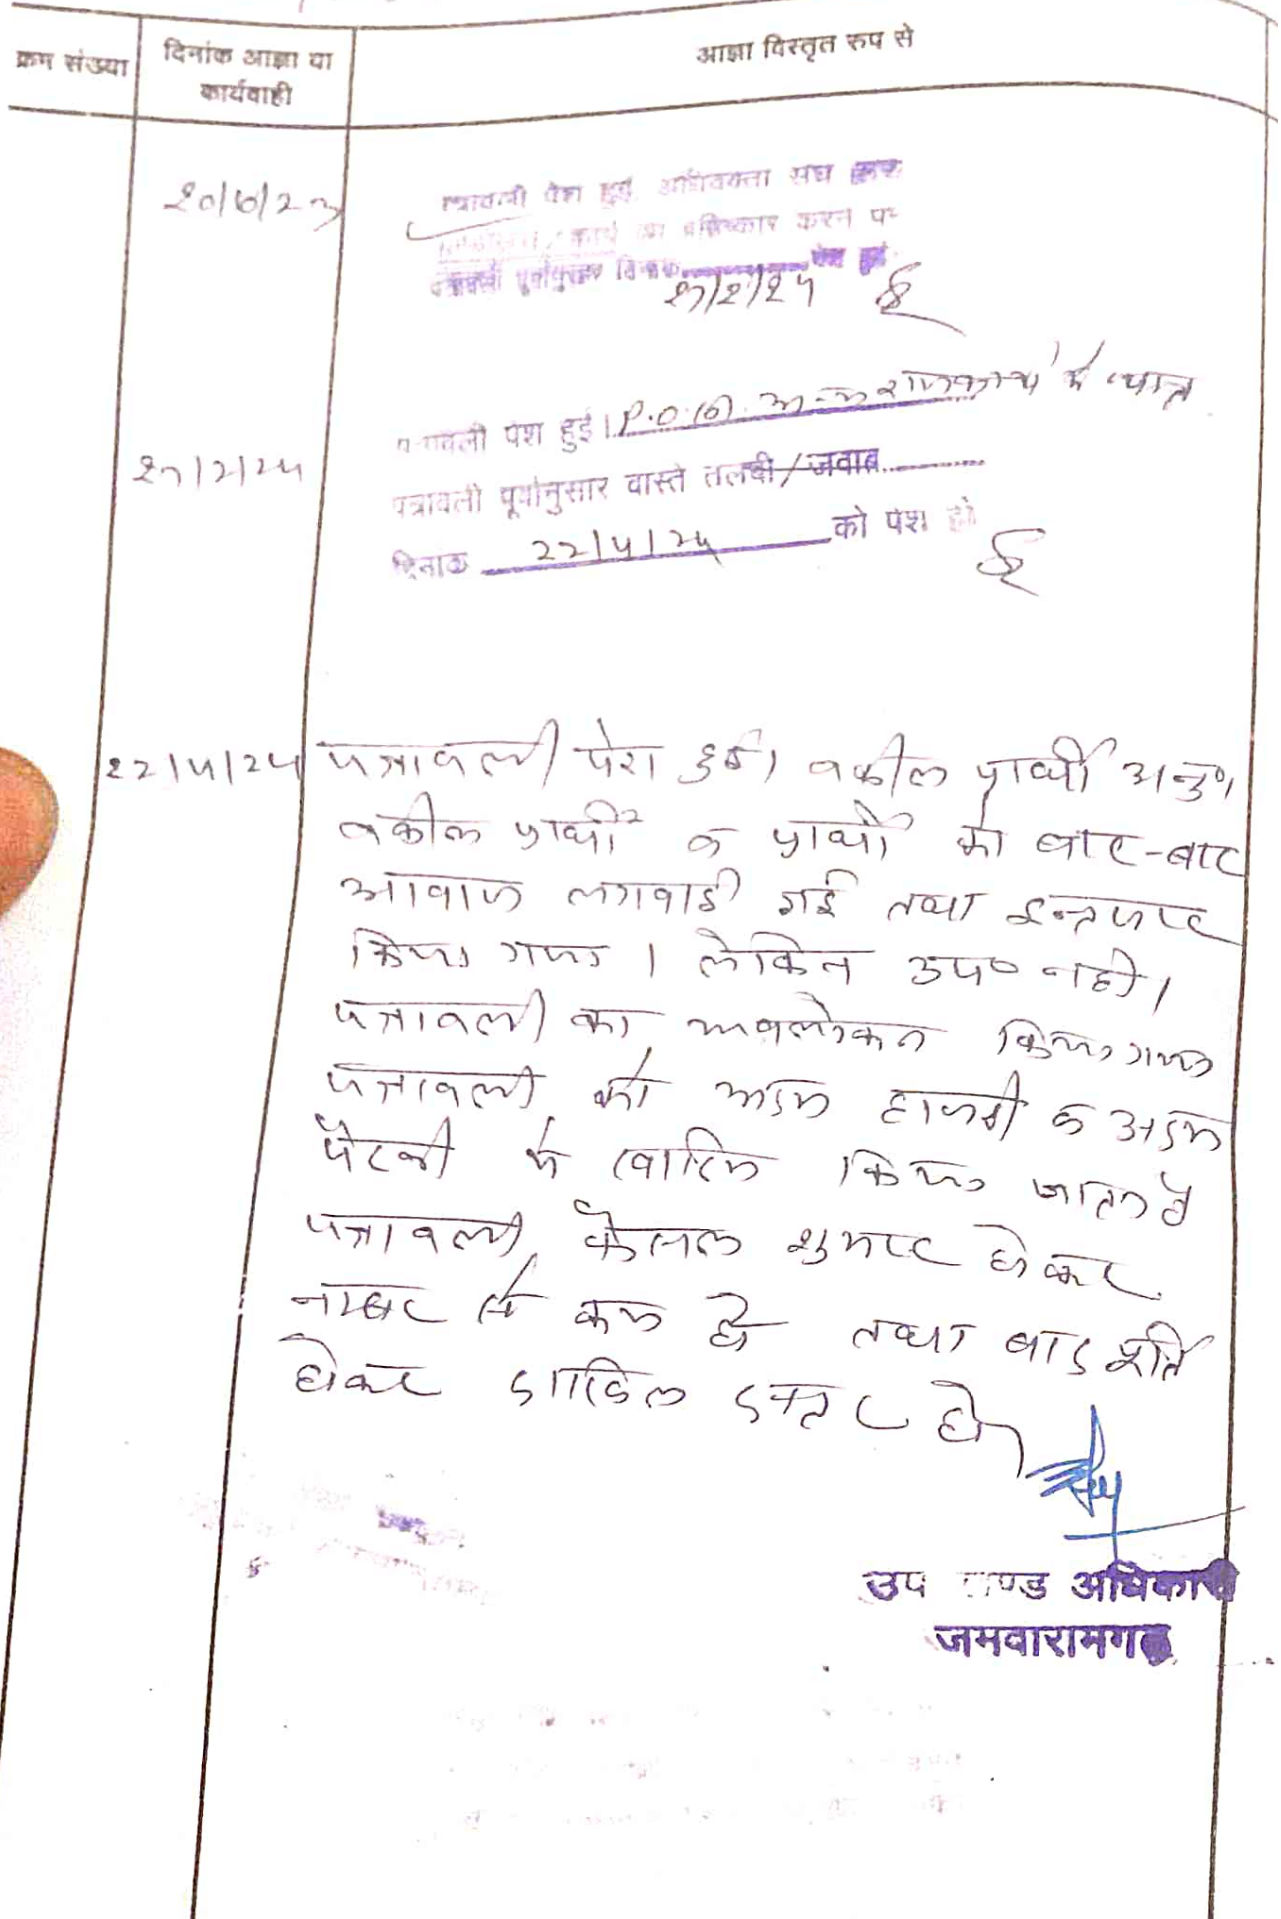 क्रम संख्या
दिनांक आज्ञा या
कार्यवाही
आज्ञा विस्तृत रुप से
पत्रावली पेश हुई अधिवक्ता संघ द्वारा
कार्य का बहिष्कार करने पर
पत्रावली पूर्वानुसार दिनांक पेश हुई
पत्रावली पेश हुई। P.O. अन्य राजकार्यो में व्यस्त
पत्रावली पूर्वानुसार वास्ते तलबी/जवाब
दिनांक 22/5/25 को पेश हो
22/5/25
पत्रावली पेश हुई। वकील प्रार्थी अनु०।
वकील प्रार्थी व प्रार्थी को बार-बार
आवाज लगवाई गई तथा इन्तजार
किया गया। लेकिन उप० नही।
पत्रावली का अवलोकन किया गया
पत्रावली को अदम हाजरी व अदम
पैरवी में खारिज किया जाता है
पत्रावली फैसल शुमार होकर
नम्बर से कम हो तथा बाद शर्ति
होकर दाखिल दफ्तर हो
उप खण्ड अधिकारी
जमवारामगढ़